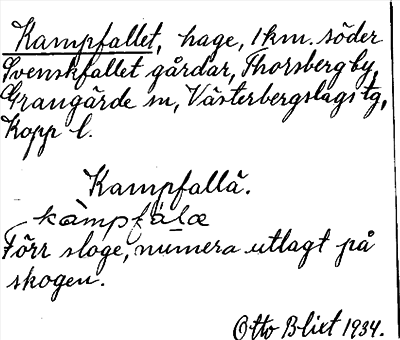 Kampfallet, hage, 1 km. söder
Svenskfallet gårdar, Thorsberg by,
Grangärde sn, Västerbergslags tg,
Kopp l.
Kampfallä.
kàmpfálæ
Förr sloge, numera utlagt på
skogen.
Otto Blixt 1934.